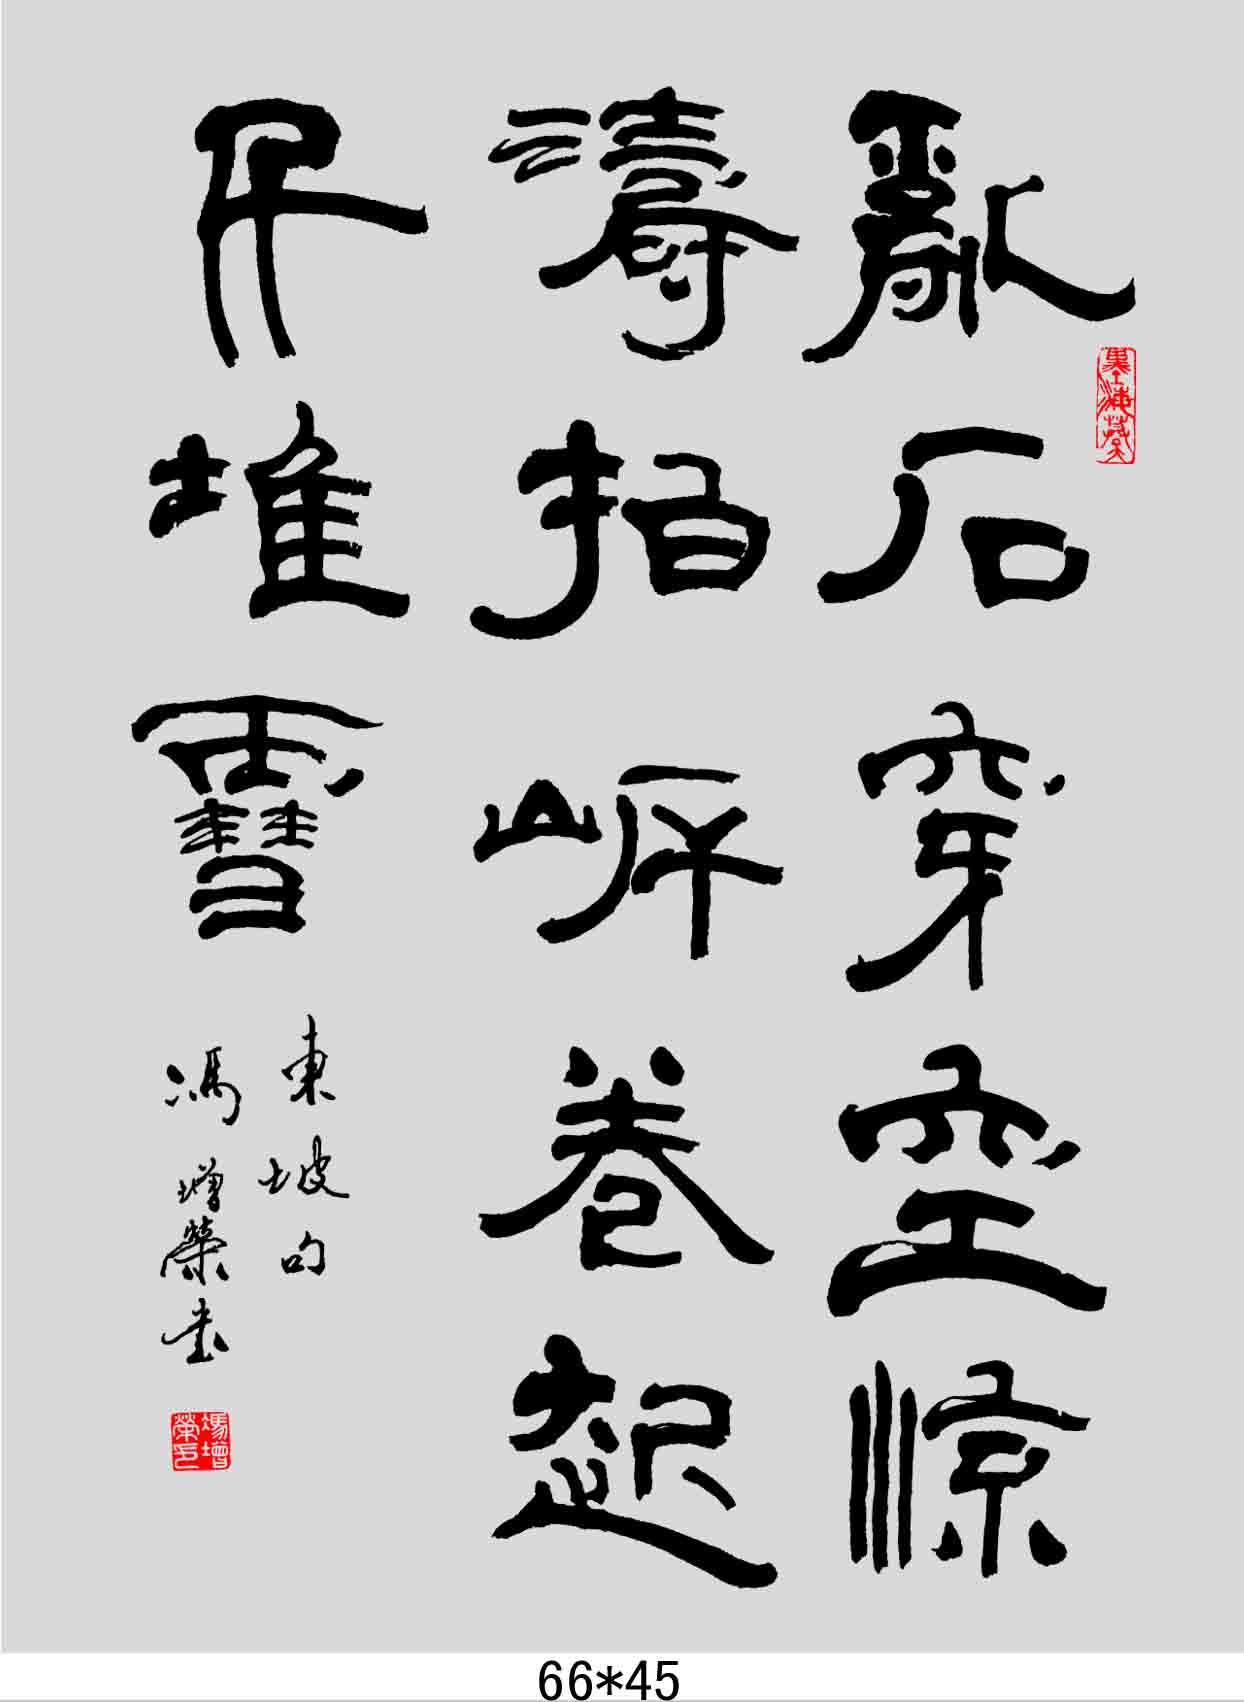 亂石穿空惊
濤拍岸卷起
千堆雪
東坡句
馮增榮書
馮增榮印
66*45